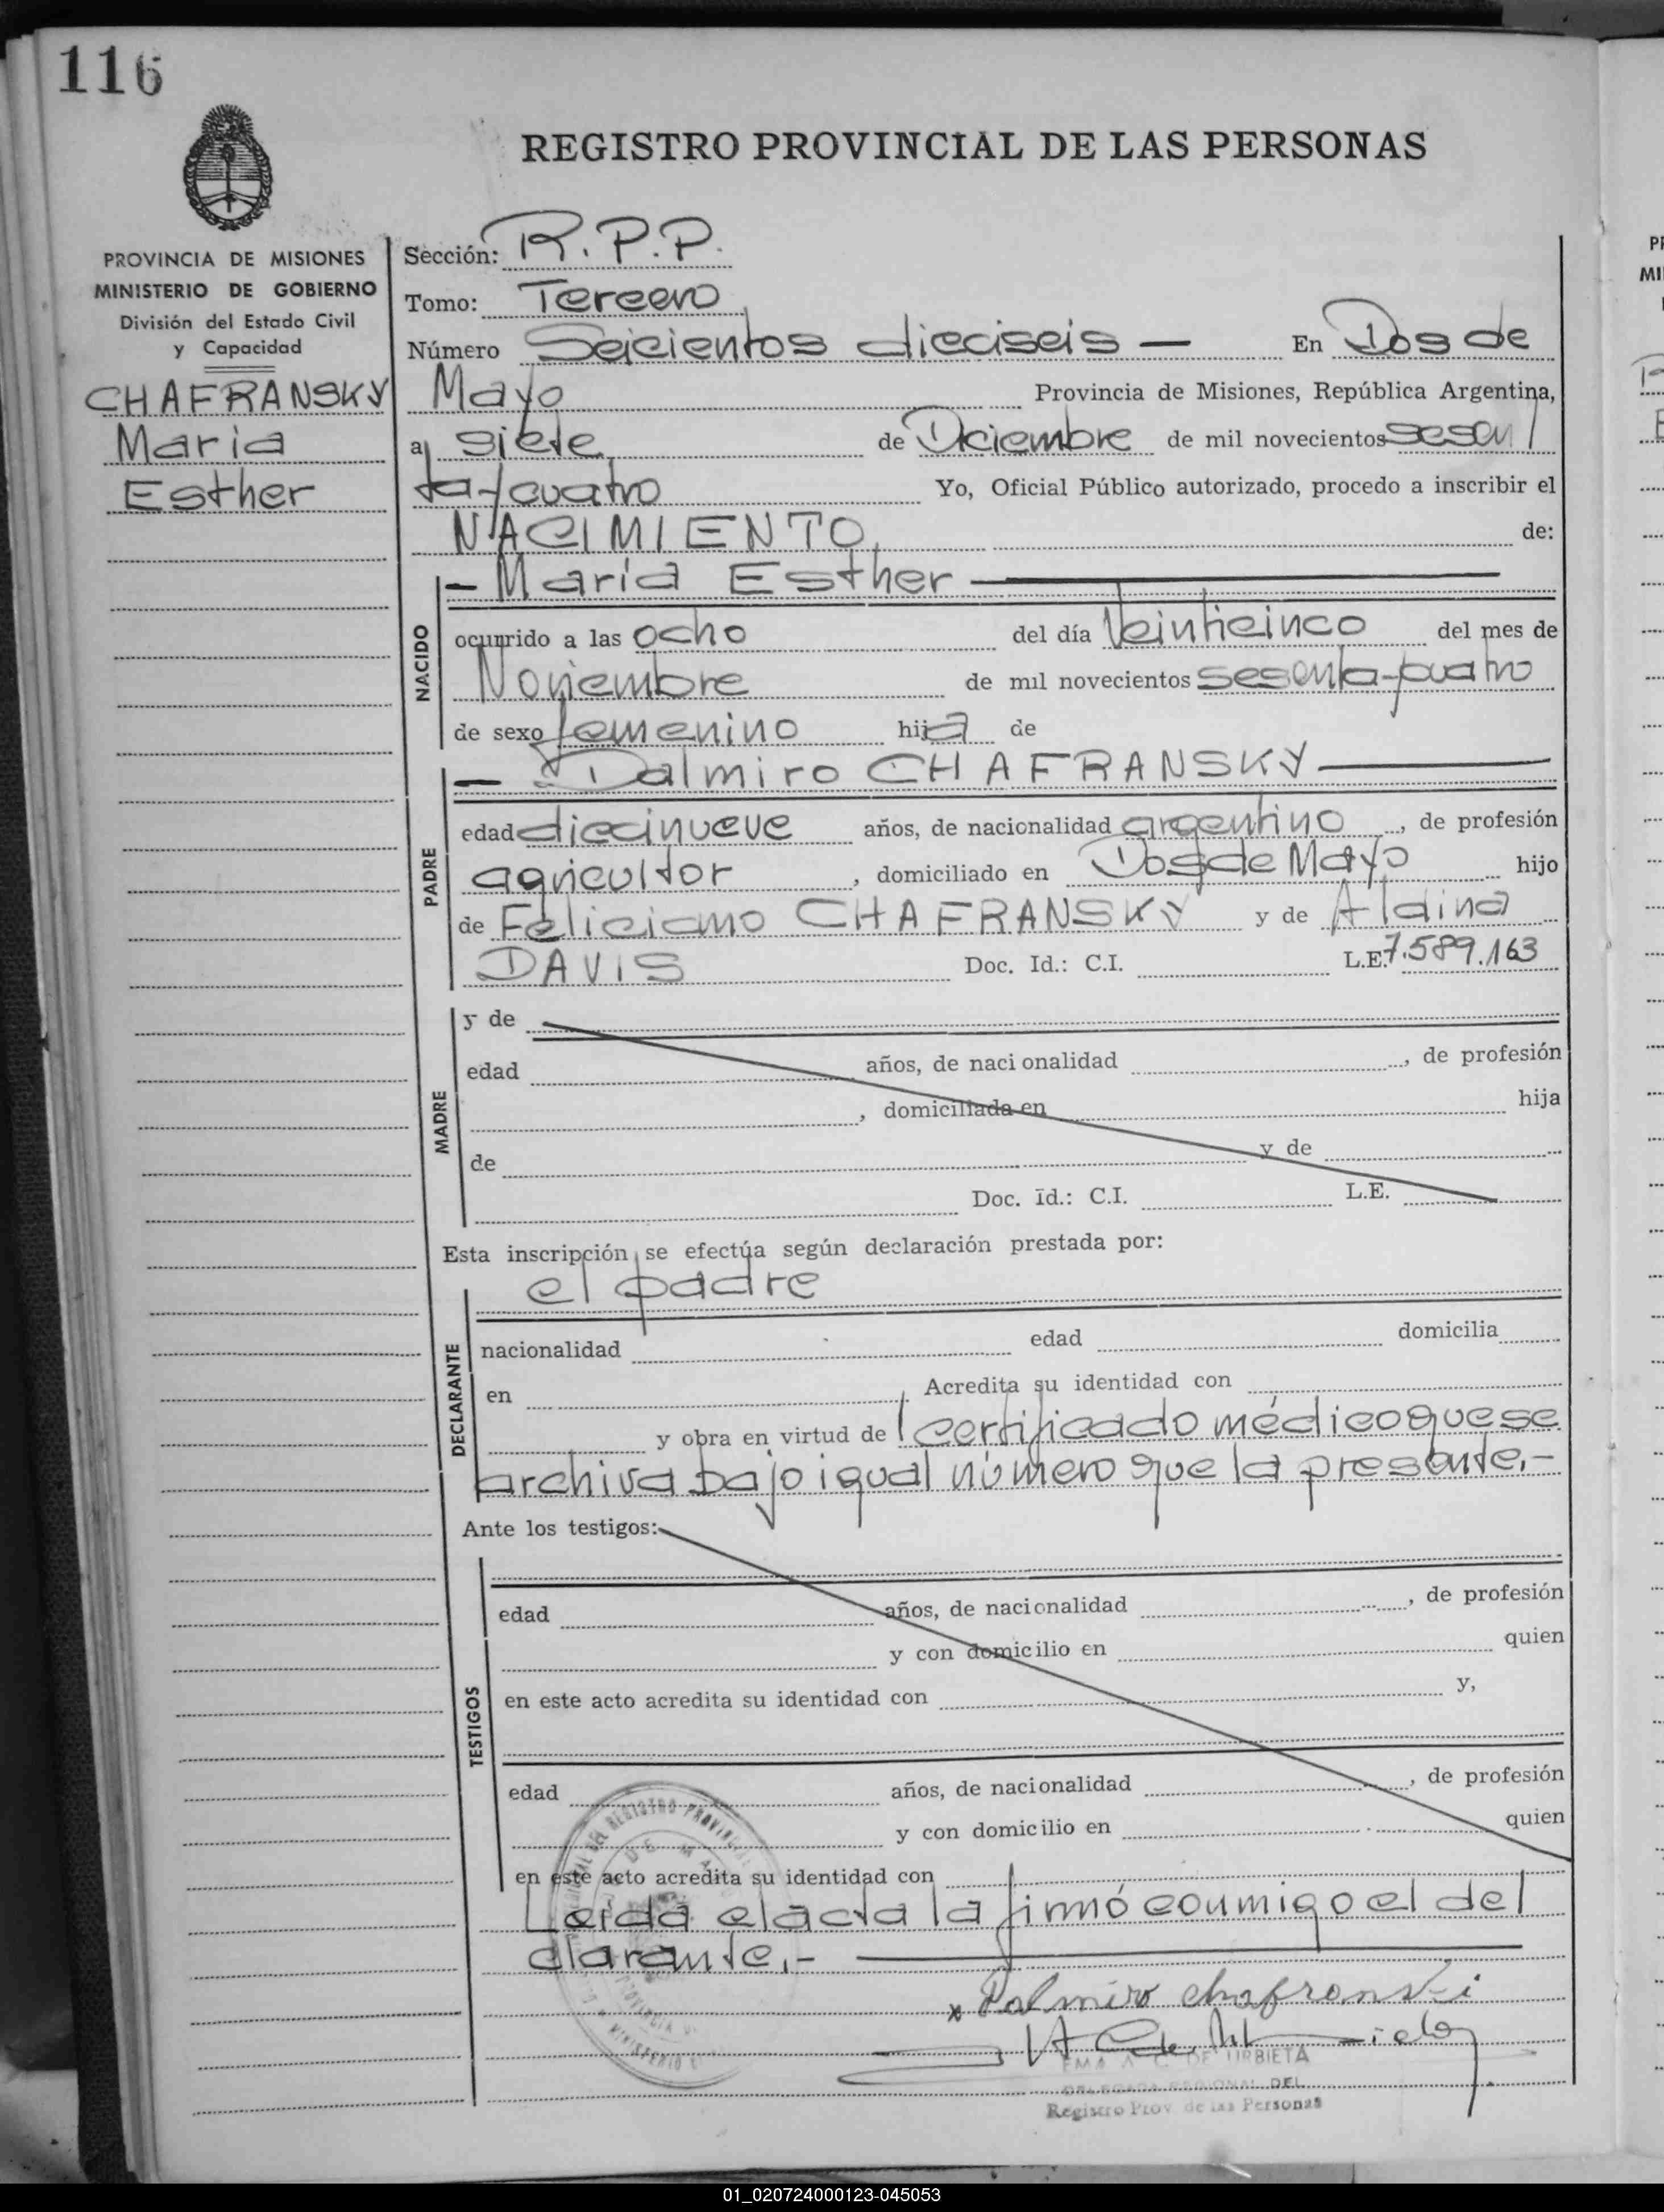 116
REGISTRO PROVINCIAL DE LAS PERSONAS
PROVINCIA DE MISIONES
MINISTERIO DE GOBIERNO
División del Estado Civil
y Capacidad
CHAFRANSKY
Maria
Esther
Sección: R.P.P.
Tomo: Tercero
Número Seicientos dieciseis — En Dos de
Mayo Provincia de Misiones, República Argentina,
a siete de Diciembre de mil novecientos sesen
ta y cuatro Yo, Oficial Público autorizado, procedo a inscribir el
NACIMIENTO de:
NACIDO
— Maria Esther —
ocurrido a las ocho del día Veinticinco del mes de
Noviembre de mil novecientos sesenta y cuatro
de sexo femenino hija de
PADRE
— Dalmiro CHAFRANSKY —
edad diecinueve años, de nacionalidad argentino, de profesión
agricultor, domiciliado en Dos de Mayo hijo
de Feliciano CHAFRANSKY y de Aldina
DAVIS Doc. Id.: C.I. L.E. 7.589.163
MADRE
y de
edad años, de nacionalidad , de profesión
, domiciliada en hija
de y de
Doc. id.: C.I. L.E.
Esta inscripción se efectúa según declaración prestada por:
DECLARANTE
el padre
nacionalidad edad domicilia
en Acredita su identidad con
y obra en virtud de certificado médico que se
archiva bajo igual número que la presente.-
Ante los testigos:
TESTIGOS
edad años, de nacionalidad , de profesión
y con domicilio en quien
en este acto acredita su identidad con y,
edad años, de nacionalidad , de profesión
y con domicilio en quien
en este acto acredita su identidad con
Leida el acta la firmó conmigo el de
clarante.- —
x Dalmiro chafranski
EMA A. C. DE URBIETA
DELEGADA REGIONAL DEL
Registro Prov. de las Personas
01_020724000123-045053